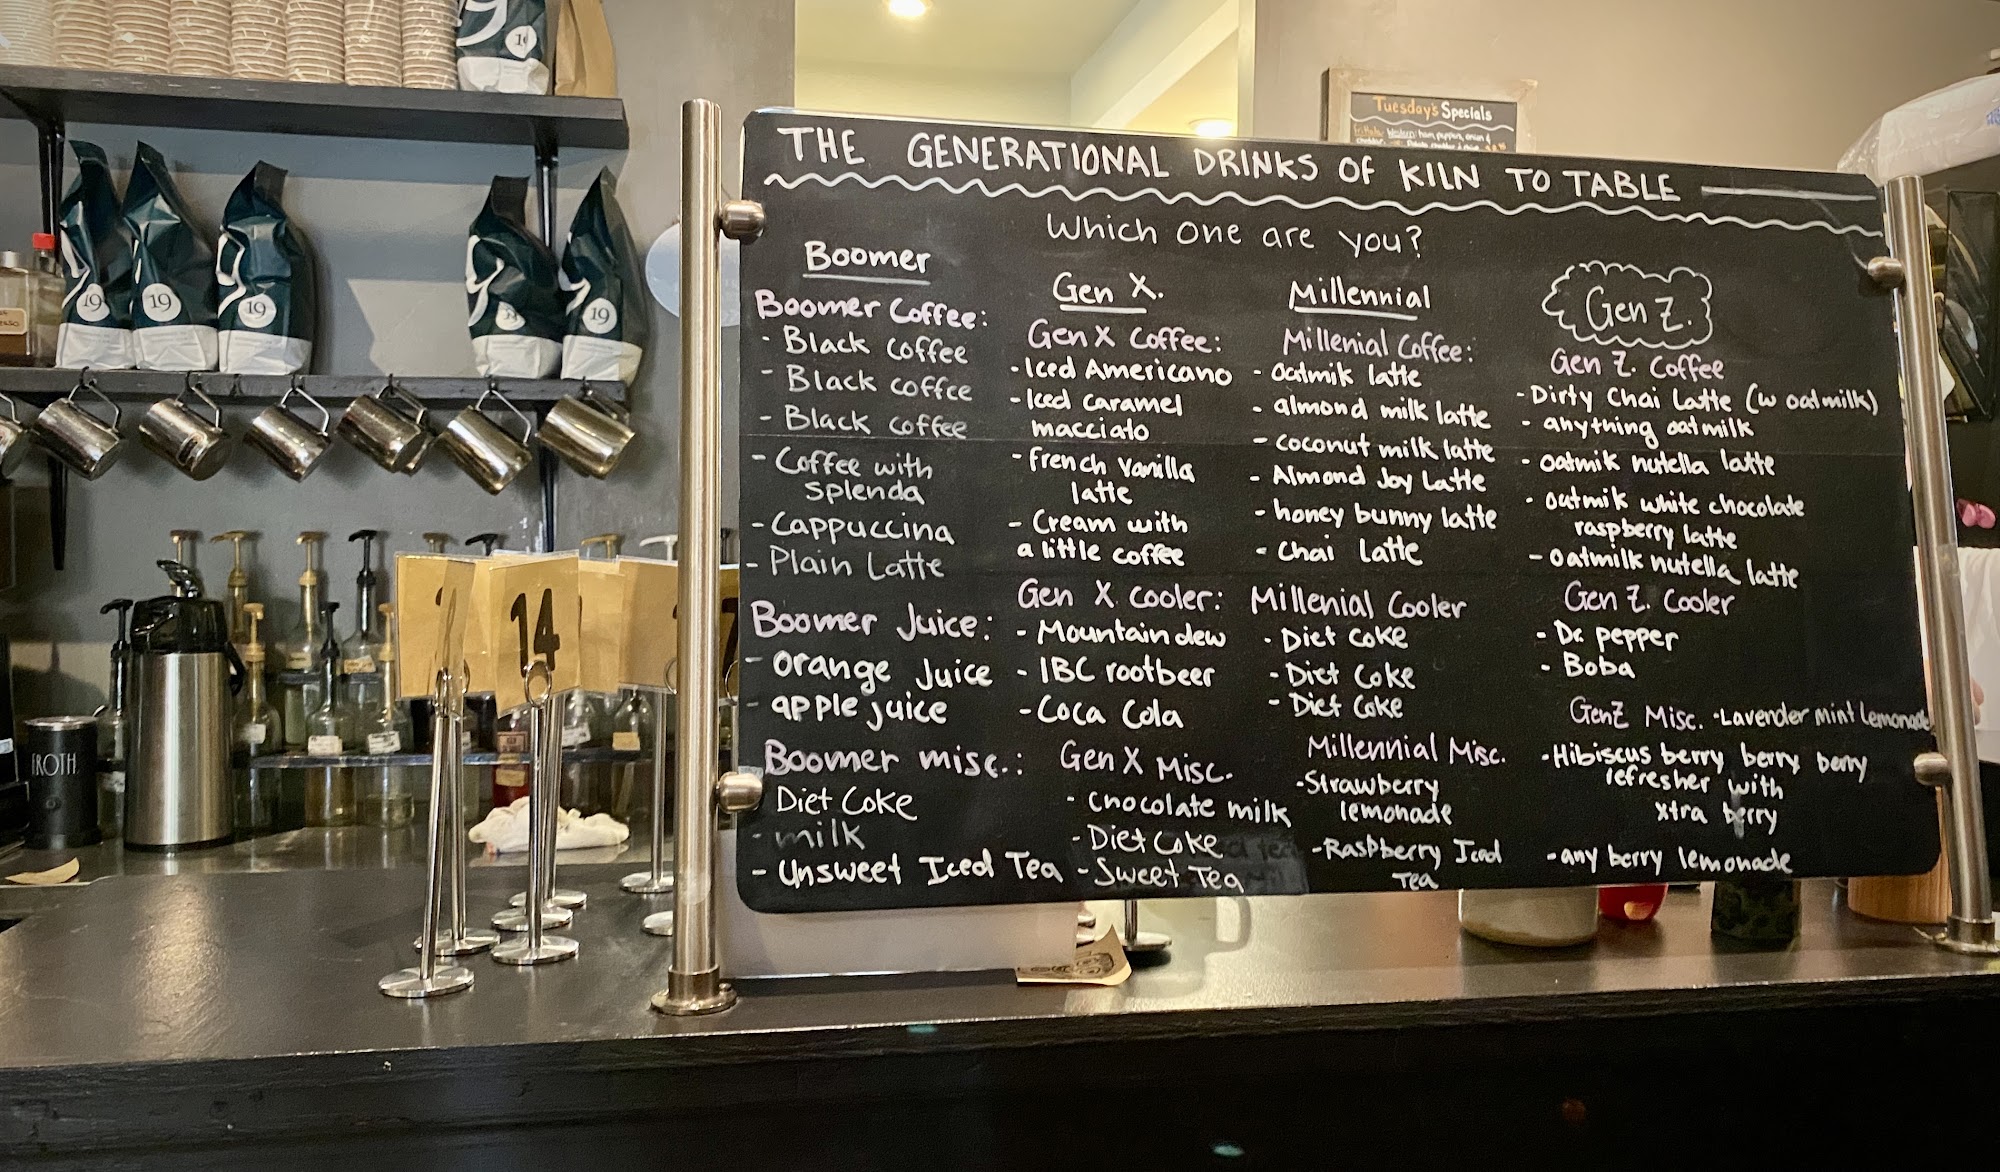 THE GENERATIONAL DRINKS OF KILN TO TABLE
Which one are you?
Boomer
Boomer Coffee:
- Black coffee
- Black coffee
- Black coffee
- Coffee with
splenda
- Cappuccina
- Plain Latte
Boomer Juice:
- orange Juice
- apple juice
Boomer misc.:
Diet Coke
- milk
- Unsweet Iced Tea
Gen X.
Gen X Coffee:
- Iced Americano
- Iced caramel
macciato
- french vanilla
latte
- Cream with
a little coffee
Gen X cooler:
- Mountain dew
- IBC rootbeer
- Coca Cola
Gen X Misc.
- chocolate milk
- Diet Coke
- Sweet Tea
Millennial
Millenial Coffee:
- oatmik latte
- almond milk latte
- coconut milk latte
- Almond Joy Latte
- honey bunny latte
- chai latte
Millenial Cooler
- Diet Coke
- Diet Coke
- Diet Coke
Millennial Misc.
- Strawberry
lemonade
- Raspberry Iced
Tea
Gen Z.
Gen Z. Coffee
- Dirty Chai Latte (w oatmilk)
- anything oatmilk
- oatmik nutella latte
- oatmik white chocolate
raspberry latte
- oatmilk nutella latte
Gen Z. Cooler
- Dr. pepper
- Boba
GenZ Misc. - Lavender mint lemonade
- Hibiscus berry berry berry
refresher with
xtra berry
- any berry lemonade
Tuesday's Specials
Western: ham, peppers, onion &
19
19
19
19
19
14
FROTH